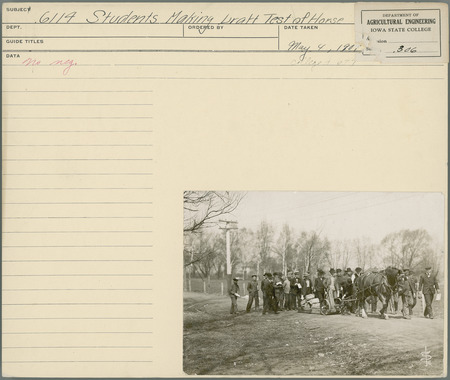 SUBJECT 6114 Students Making Draft Test of Horse
DEPT.
ORDERED BY
DATE TAKEN
May 4, 190
GUIDE TITLES
DATA
no neg.
DEPARTMENT OF
AGRICULTURAL ENGINEERING
IOWA STATE COLLEGE
306